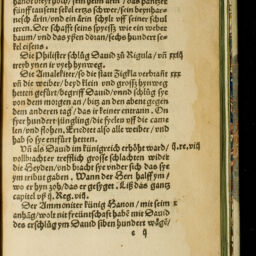 fünff tausent sekel ertzs schwer/ sein beynharnesch
nesch ärin/ vnd ein ärin schylt vff seiner schul
teren. Der schafft seins spyeß wie ein weber
baum/ vnd das yßen dōran/ sechs hundert se-
kel eisens.
Die Philister schlůg Dauid zů Rigula/ vn̄ xxiij
treyb ynen ir vych hynweg.
Die Amalekiter/ so die statt Zigkla verbrañt xxx
vn̄ die weiber/ beyd klein vnd groß/ hynweg
hetten gefürt/ begreiff Dauid/ vnnd schlůg sye
von dem morgen an/ biz an den abent gegen
dem anderen tag/ das ir keiner entrann. On
fyer hundert jüngling/ die fyelen vff die came
len/ vnd flohen. Errettet also alle weiber/ vnd
hab so sye entfürt hetten.
Vn̄ als Dauid im künigreich erhöht ward/ ij. re. viij
vollbrachter trefflich grosse schlachten wider
die Heyden/ vnd bracht sye vnder sich das sye
ym tribut gaben. Wann der Herr halff ym/
wo er hyn zoh/ das er gesyget. Liß das gantz
capitel vß ij. Reg. viij.
Der Ammoniter künig Hanon/ mit seim x
anhäg/ wolt nit freüntschafft habē mit Dauid
des erschlůg ym Dauid siben hundert wägē/
e ij